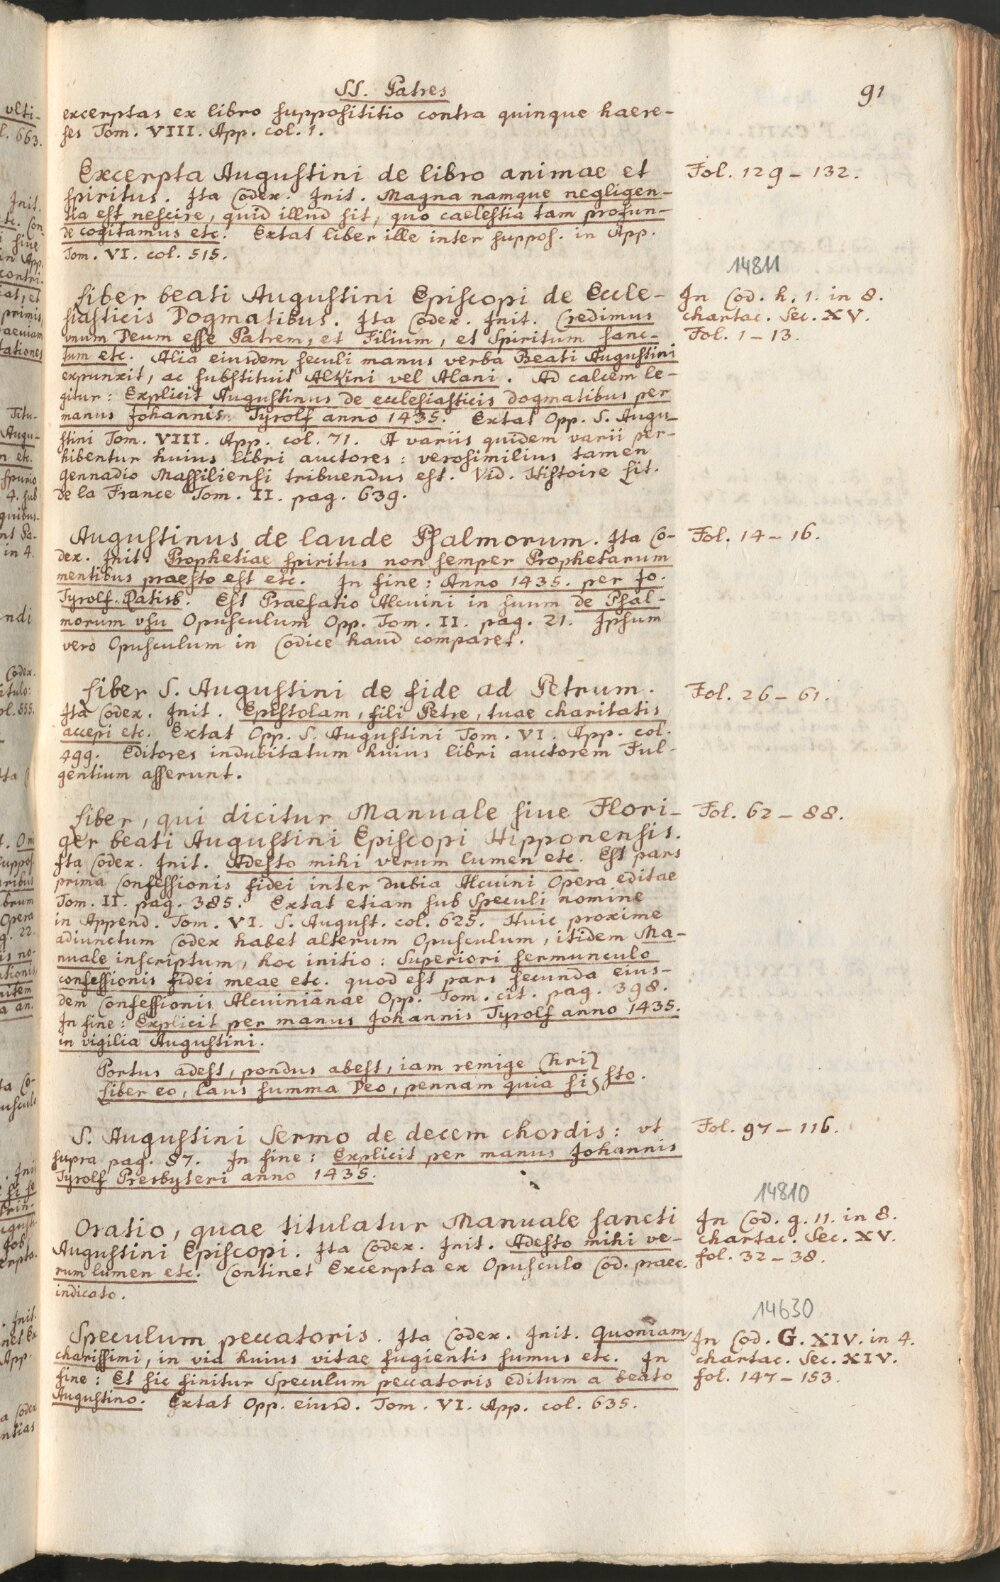 SS. Patres
91
excerptas ex libro supposititio contra quinque haere-
ses Tom. VIII. App. col. 1.
Excerpta Augustini de libro animae et
Fol. 129 – 132.
spiritus. Ita Codex. Init. Magna namque negligen-
tia est nescire, quid illud sit, quo caelestia tam profun-
de cogitamus etc. Extat liber ille inter suppos. in App.
Tom. VI. col. 515.
14811
Liber beati Augustini Episcopi de Eccle-
In Cod. h. 1. in 8.
siasticis Dogmatibus. Ita Codex. Init. Credimus
chartac. Sec. XV.
vnum Deum esse Patrem, et Filium, et Spiritum Sanc-
Fol. 1 – 13.
tum etc. Alia eiusdem seculi manus verba Beati Augustini
expunxit, ac substituit Alvini vel Alani. Ad calcem le-
gitur: Explicit Augustinus de ecclesiasticis dogmatibus per
manus Johannis Tyrolf anno 1435. Extat Opp. S. Augu-
stini Tom. VIII. App. col. 71. A variis quidem varii per-
hibentur huius libri auctores: verosimilius tamen
Gennadio Massiliensi tribuendus est. Vid. Histoire Lit.
de la France Tom. II. pag. 639.
Augustinus de laude Psalmorum. Ita Co-
Fol. 14 – 16.
dex. Init. Prophetiae spiritus non semper Prophetarum
mentibus praesto est etc. In fine: Anno 1435. per Jo.
Tyrolf. Ratisb. Est Praefatio Alcuini in suum de Psal-
morum vsu Opusculum Opp. Tom. II. pag. 21. Ipsum
vero Opusculum in Codice haud comparet.
Liber S. Augustini de fide ad Petrum.
Fol. 26 – 61.
Ita Codex. Init. Epistolam, fili Petre, tuae charitatis
accepi etc. Extat Opp. S. Augustini Tom. VI. App. col.
499. Editores indubitatum huius libri auctorem Ful-
gentium asserunt.
Liber, qui dicitur Manuale siue Flori-
Fol. 62 – 88.
ger beati Augustini Episcopi Hipponensis.
Ita Codex. Init. Adesto mihi verum lumen etc. Est pars
prima Confessionis fidei inter dubia Alcuini Opera editae
Tom. II. pag. 385. Extat etiam sub Speculi nomine
in Append. Tom. VI. S. August. col. 625. Huic proxime
adiunctum Codex habet alterum Opusculum, itidem Ma-
nuale inscriptum, hoc initio: Superiori sermunculo
confessionis fidei meae etc. quod est pars secunda eius-
dem Confessionis Alcuinianae Opp. Tom. cit. pag. 398.
In fine: Explicit per manus Johannis Tyrolf anno 1435.
in vigilia Augustini.
Portus adest, pondus abest, iam remige Chri
Liber eo, laus summa Deo, pennam quia si } sto.
S. Augustini Sermo de decem chordis: vt
Fol. 97 – 116.
supra pag. 87. In fine: Explicit per manus Johannis
Tyrolf Presbyteri anno 1435.
14810
Oratio, quae titulatur Manuale sancti
In Cod. g. 11. in 8.
Augustini Episcopi. Ita Codex. Init. Adesto mihi ve-
chartac. Sec. XV.
rum lumen etc. Continet Excerpta ex Opusculo Cod. praec.
fol. 32 – 38.
indicato.
14630
Speculum peccatoris. Ita Codex. Init. Quoniam
In Cod. G. XIV. in 4.
charissimi, in via huius vitae fugientis sumus etc. In
chartac. Sec. XIV.
fine: Et sic finitur Speculum peccatoris editum a beato
fol. 147 – 153.
Augustino. Extat Opp. eiusd. Tom. VI. App. col. 635.